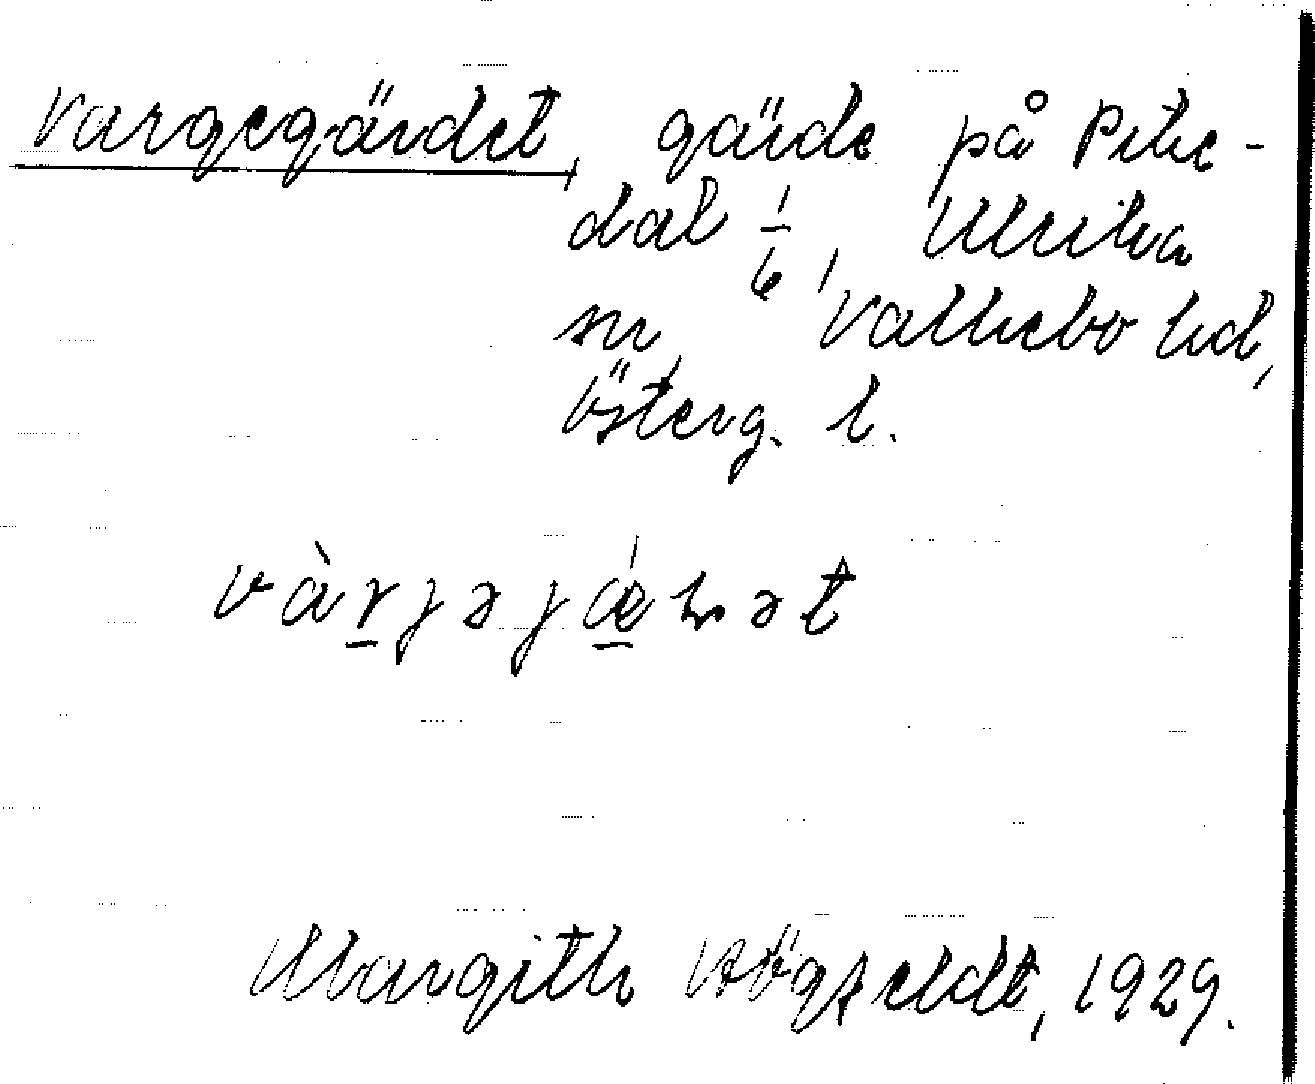 Vargegärdet, gärde på Pite-
dal 1/6, Ulrika
sn, Vallebo hd,
Österg. l.
vàrjəjǽɳət
Margith Högfeldt, 1929.